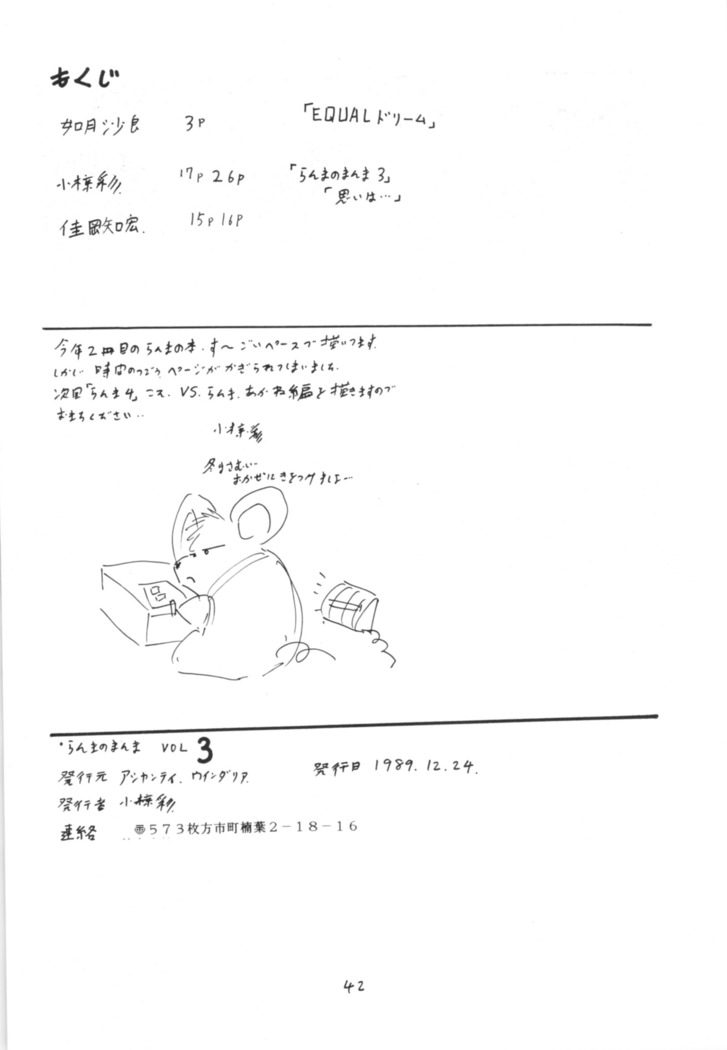 もくじ
如月沙良 3P 「EQUALドリーム」
小椋彩 17P 26P 「らんまのまんま3」
「思いは…」
佳岡知宏. 15P 16P
今年2冊目のらんまの本. す〜ごいペースで描いてます.
しかし 時間のつごう、ページがかぎられてしまいました.
次回「らんま4」こそ. VS. らんま. あかね編を描きますので
おまちください..
小椋彩
冬はさむい…
おかぜにきをつけましょ…
・らんまのまんま VOL 3
発行元 アシャンティ. ウインダリア. 発行日 1989.12.24.
発行者 小椋彩
連絡 〠573枚方市町楠葉2－18－16
42